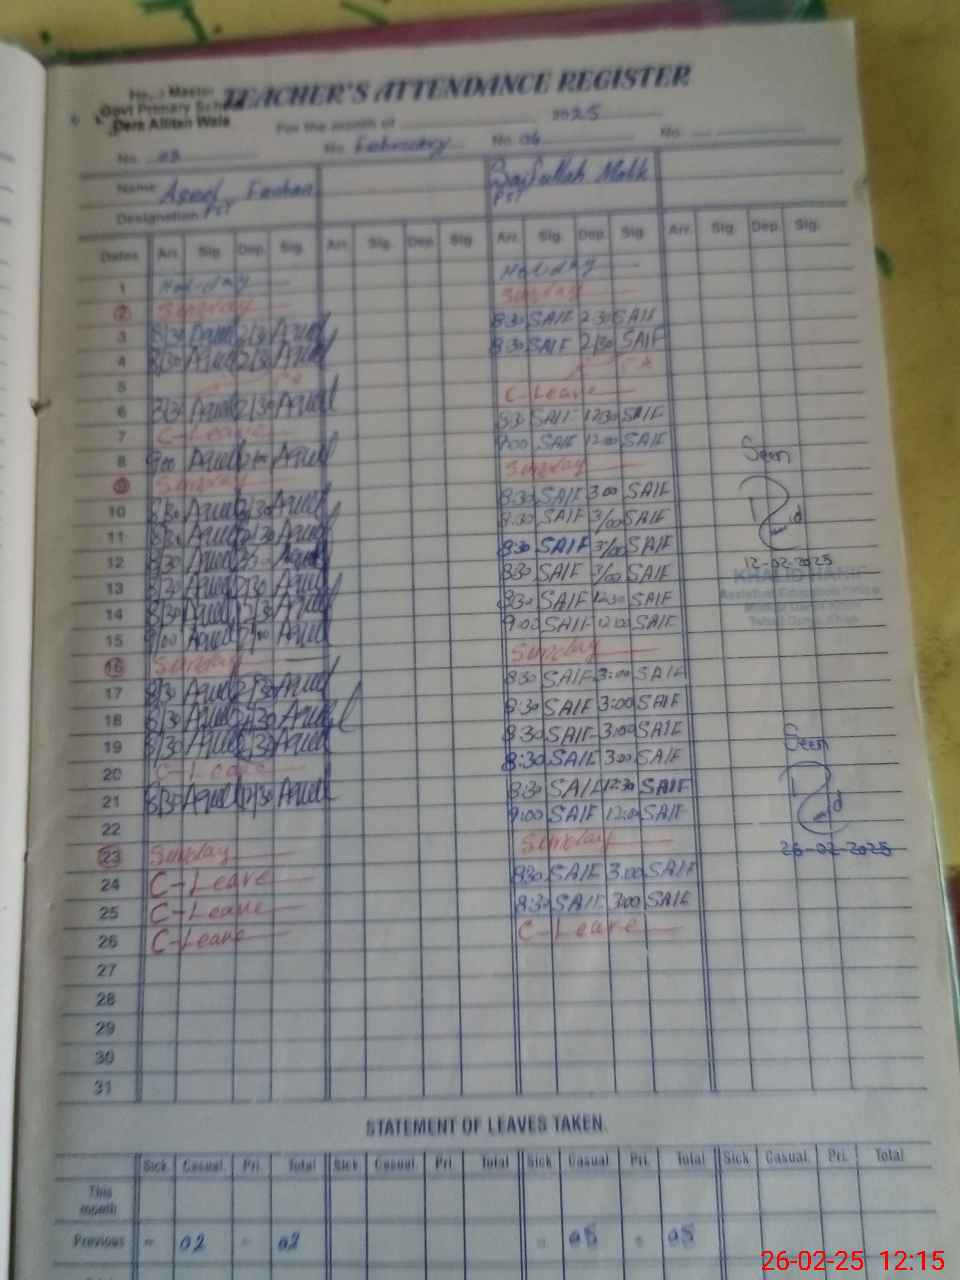 TEACHER'S ATTENDANCE REGISTER
Head Master
Govt Primary School
Dera Allitan Wala
For the month of 2025
No. 03 No. February No. 06 No.
Name Aqeel Saifullah Malik
Designation PST PST
Dates Arr. Sig. Dep. Sig. Arr. Sig. Dep. Sig. Arr. Sig. Dep. Sig. Arr. Sig. Dep. Sig.
1 Holiday Holiday
2 Sunday Sunday
3 8/30 Aqeel 2/30 Aqeel 8:30 SAIF 2:30 SAIF
4 8/30 Aqeel 2/30 Aqeel 8:30 SAIF 2/30 SAIF
5
6 8/30 Aqeel 2/30 Aqeel C-Leave
7 C-Leave 8:30 SAIF 12:30 SAIF
8 9:00 Aqeel Aqeel 9:00 SAIF 12:00 SAIF
9 Sunday Sunday
10 8/30 Aqeel 2/30 Aqeel 8:30 SAIF 3:00 SAIF
11 8/30 Aqeel 2/30 Aqeel 8:30 SAIF 3/00 SAIF
12 8/30 Aqeel Aqeel 8:30 SAIF 3/00 SAIF
13 8/30 Aqeel 2/30 Aqeel 8:30 SAIF 3/00 SAIF
14 8/30 Aqeel 12/30 Aqeel 8:30 SAIF 12:30 SAIF
15 9/00 Aqeel Aqeel 9:00 SAIF 12:00 SAIF
16 Sunday Sunday
17 8/30 Aqeel 2/30 Aqeel 8:30 SAIF 3:00 SAIF
18 8/30 Aqeel 2/30 Aqeel 8:30 SAIF 3:00 SAIF
19 8/30 Aqeel 2/30 Aqeel 8:30 SAIF 3:00 SAIF
20 C-Leave 8:30 SAIF 3:00 SAIF
21 8/30 Aqeel 12/30 Aqeel 8:30 SAIF 12:30 SAIF
22 9:00 SAIF 12:00 SAIF
23 Sunday Sunday
24 C-Leave 8:30 SAIF 3:00 SAIF
25 C-Leave 8:30 SAIF 3:00 SAIF
26 C-Leave C-Leave
27
28
29
30
31
Seen
12-02-2025
KHALID HANIF
Assistant Education Officer
Seen
26-02-2025
STATEMENT OF LEAVES TAKEN
Sick Casual Pri. Total Sick Casual Pri. Total Sick Casual Pri. Total Sick Casual Pri. Total
This month
Previous - 02 - 02 - 05 - 05
26-02-25 12:15